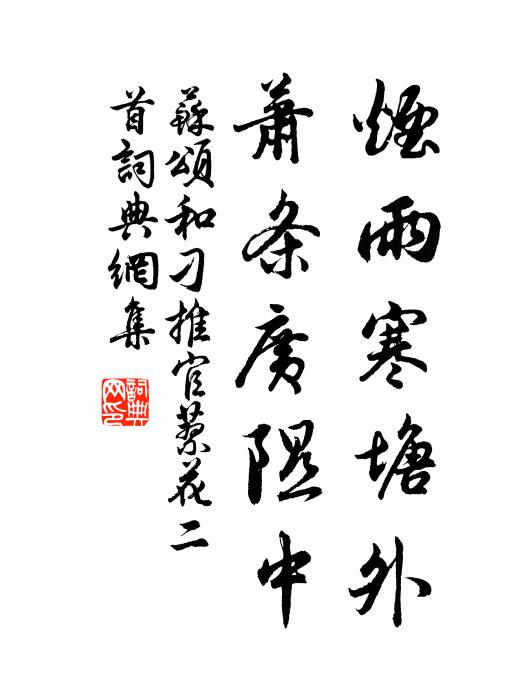 煙雨寒塘外
蕭条廣隰中
蘇頌和刁推官蓼花二
首詞典網集
詞典網印